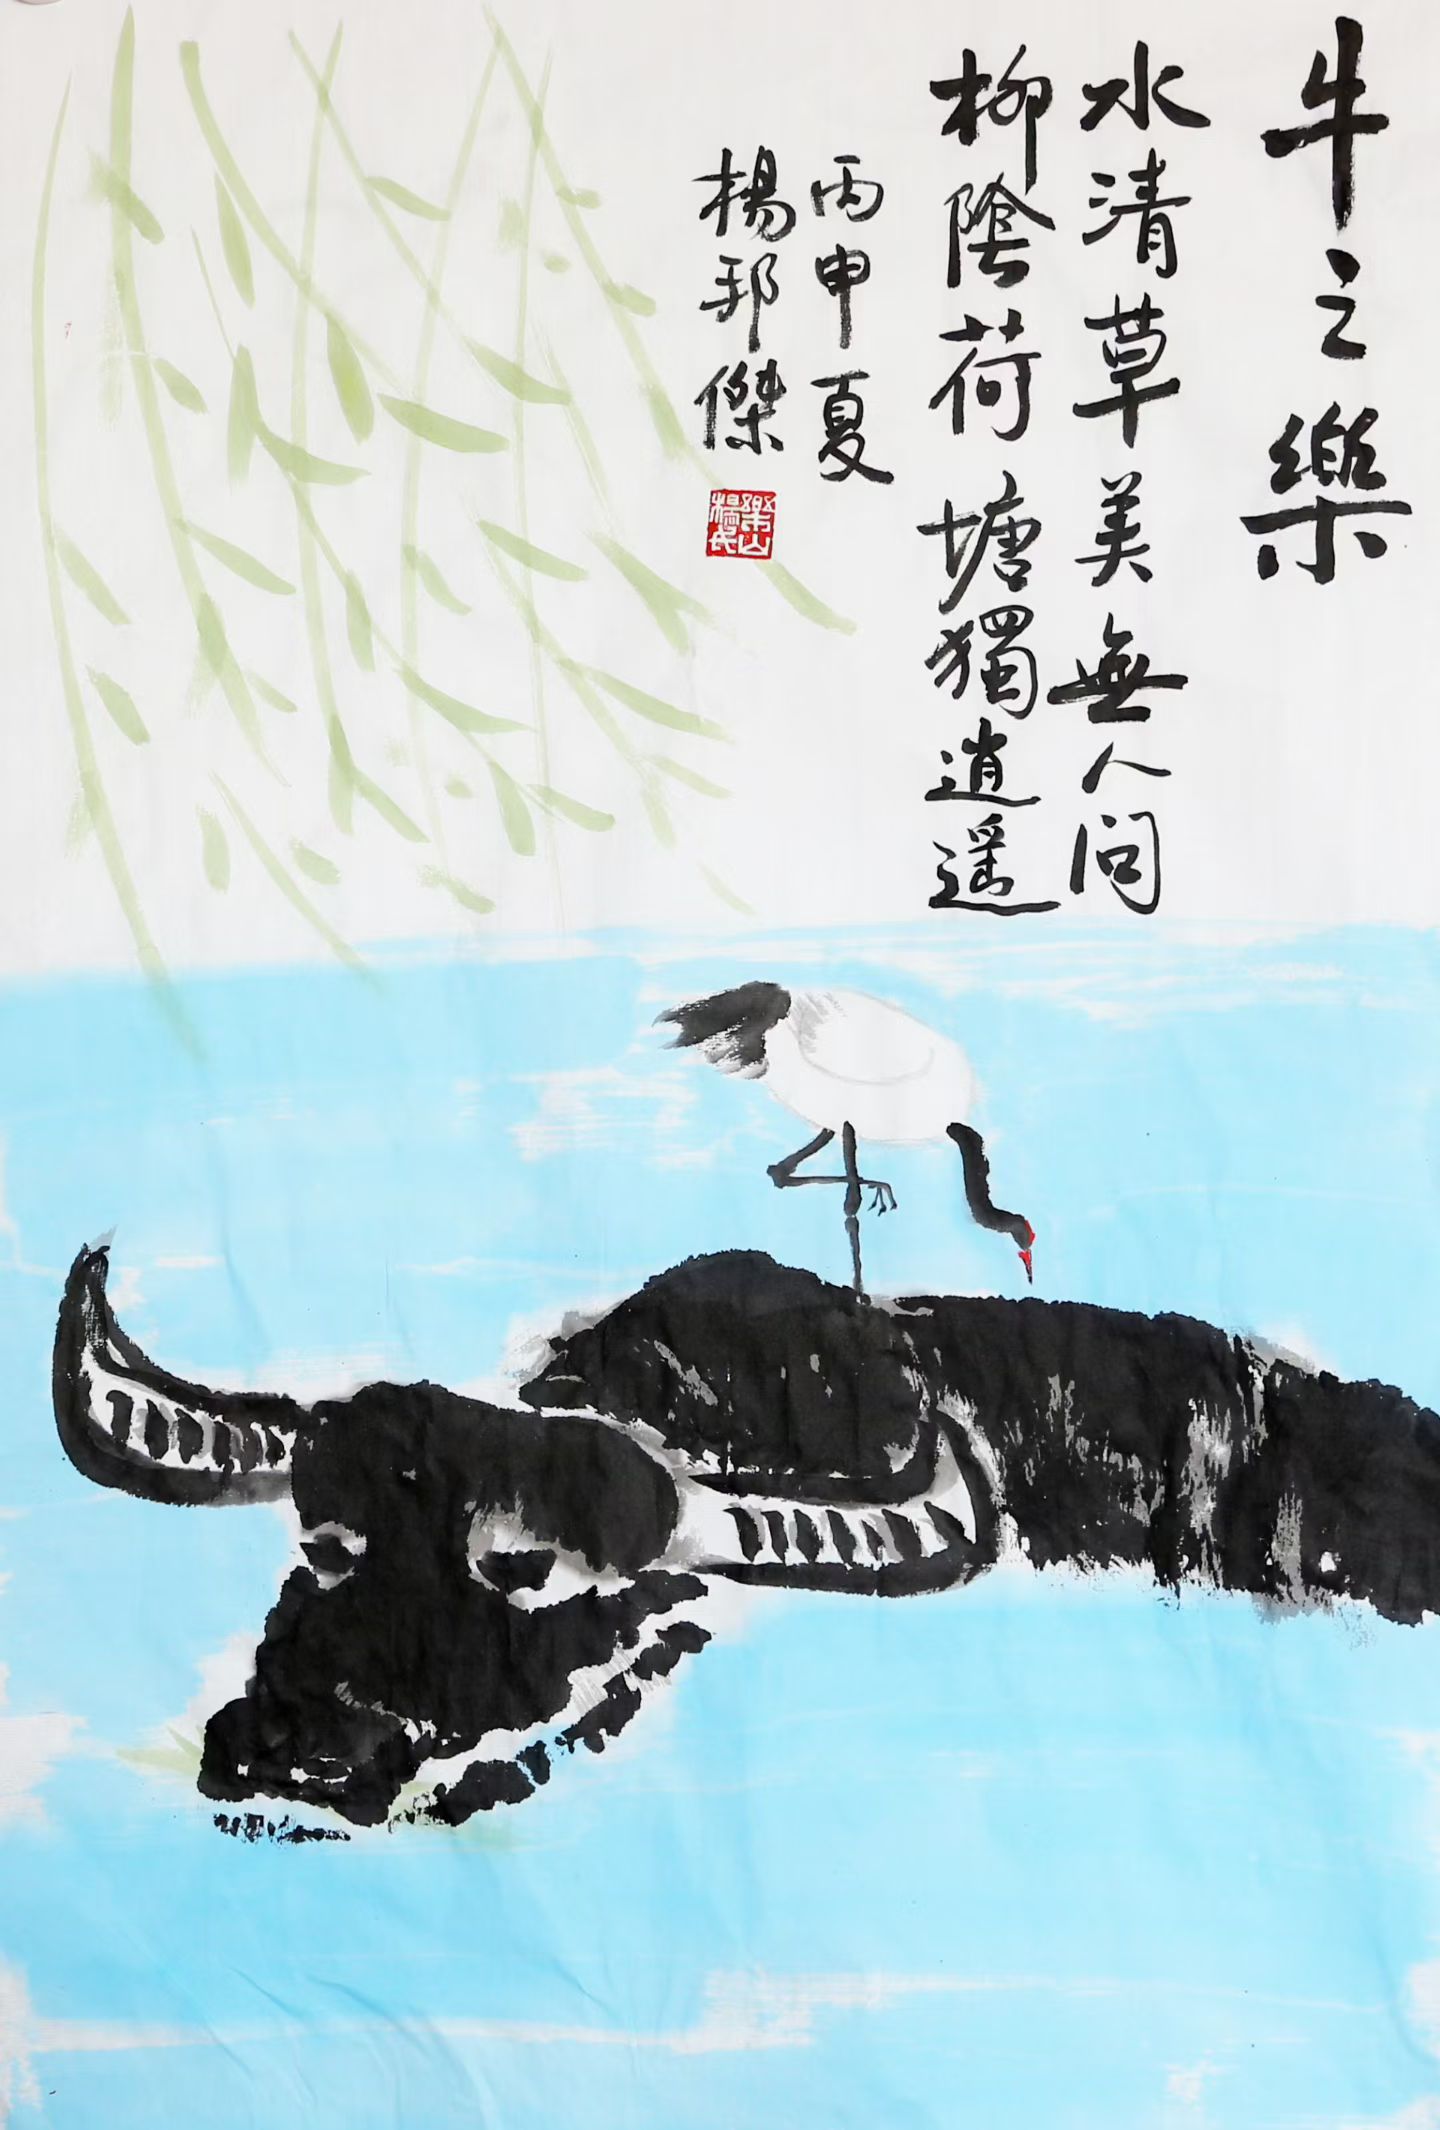 牛之樂
水清草美無人問
柳陰荷塘獨逍遥
丙申夏
楊邦傑
樂山
楊氏